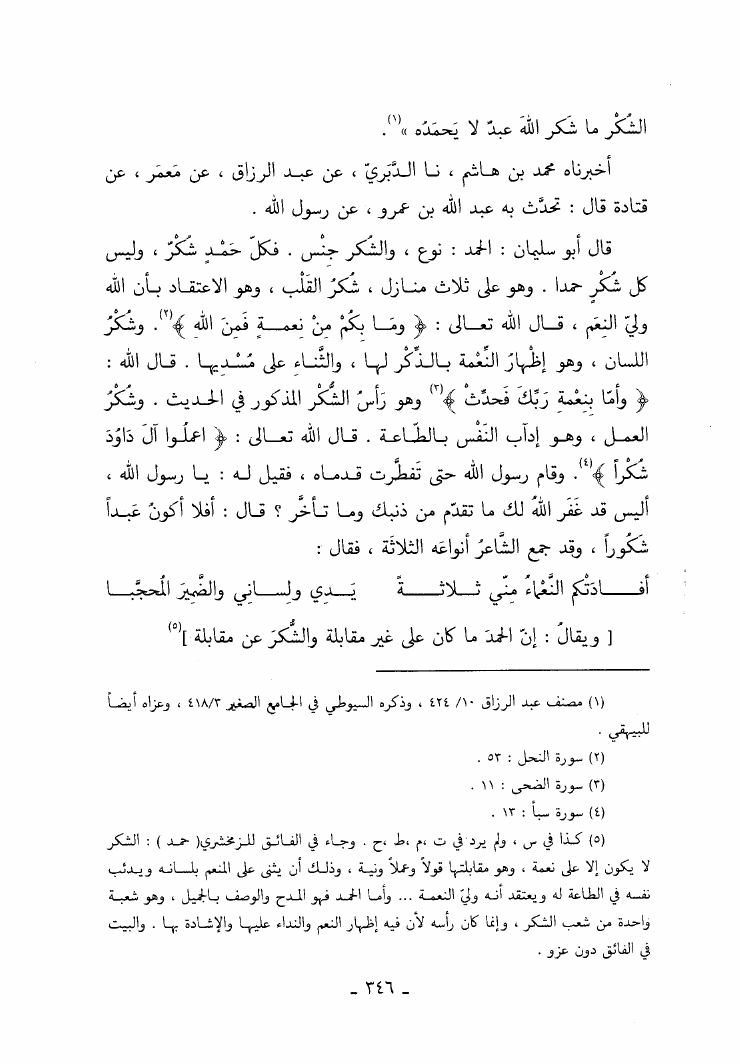 الشُكْر ما شَكر اللهَ عبدٌ لا يَحمَدُه »(١).
أخبرناه محمد بن هاشم ، نا الدَّبَريّ ، عن عبد الرزاق ، عن مَعمَر ، عن
قتادة قال : تحدَّث به عبد الله بن عمرو ، عن رسول الله .
قال أبو سليمان : الحمد : نوع ، والشُكر جِنْس . فكلّ حَمْدٍ شكْرٌ ، وليس
كل شكْرٍ حمدا . وهو على ثلاث منازل ، شكرُ القَلْب ، وهو الاعتقاد بأن الله
وليّ النِعَم ، قال الله تعالى : ﴿ ومَا بِكُمْ مِنْ نِعمةٍ فَمِنَ اللهِ ﴾(٢). وشكْرُ
اللسان ، وهو إظهارُ النِّعْمة بالذِّكْر لها ، والثَّناء على مُسْدِيها . قال الله :
﴿ وأمّا بِنِعْمةِ رَبِّكَ فَحدِّثْ ﴾(٣) وهو رَأسُ الشُّكْر المذكور في الحديث . وشكْرُ
العمل ، وهو إدآب النَفْس بالطّاعة . قال الله تعالى : ﴿ اعمَلُوا آلَ دَاوُدَ
شكْراً ﴾(٤). وقام رسول الله حتى تَفطَّرت قدماه ، فقيل له : يا رسول الله ،
أليس قد غفَر اللهُ لك ما تقدّم من ذنبك وما تأخَّر ؟ قال : أفلا أكونُ عَبداً
شكُوراً ، وقد جمع الشَّاعرُ أنواعَه الثلاثَة ، فقال :
أفادَتكم النَّعْماءُ مِنّي ثلاثةً يَدِي ولِساني والضَّمِيرَ المُحجَّبا
[ ويقالُ : إنّ الحمدَ ما كان على غير مقابلة والشُّكرَ عن مقابلة ](٥)
(١) مصنف عبد الرزاق ١٠/ ٤٢٤ ، وذكره السيوطي في الجامع الصغير ٤١٨/٣ ، وعزاه أيضاً
للبيهقي .
(٢) سورة النحل : ٥٣ .
(٣) سورة الضحى : ١١ .
(٤) سورة سبأ : ١٣ .
(٥) كذا في س ، ولم يرد في ت ،م ،ط ،ح . وجاء في الفائق للزمخشري( حمد ) : الشكر
لا يكون إلا على نعمة ، وهو مقابلتها قولاً وعملاً ونية ، وذلك أن يثنى على المنعم بلسانه ويدئب
نفسه في الطاعة له ويعتقد أنه وليّ النعمة ... وأما الحمد فهو المدح والوصف بالجميل ، وهو شعبة
واحدة من شعب الشكر ، وإنما كان رأسه لأن فيه إظهار النعم والنداء عليها والإشادة بها . والبيت
في الفائق دون عزو .
ـ ٣٤٦ ـ